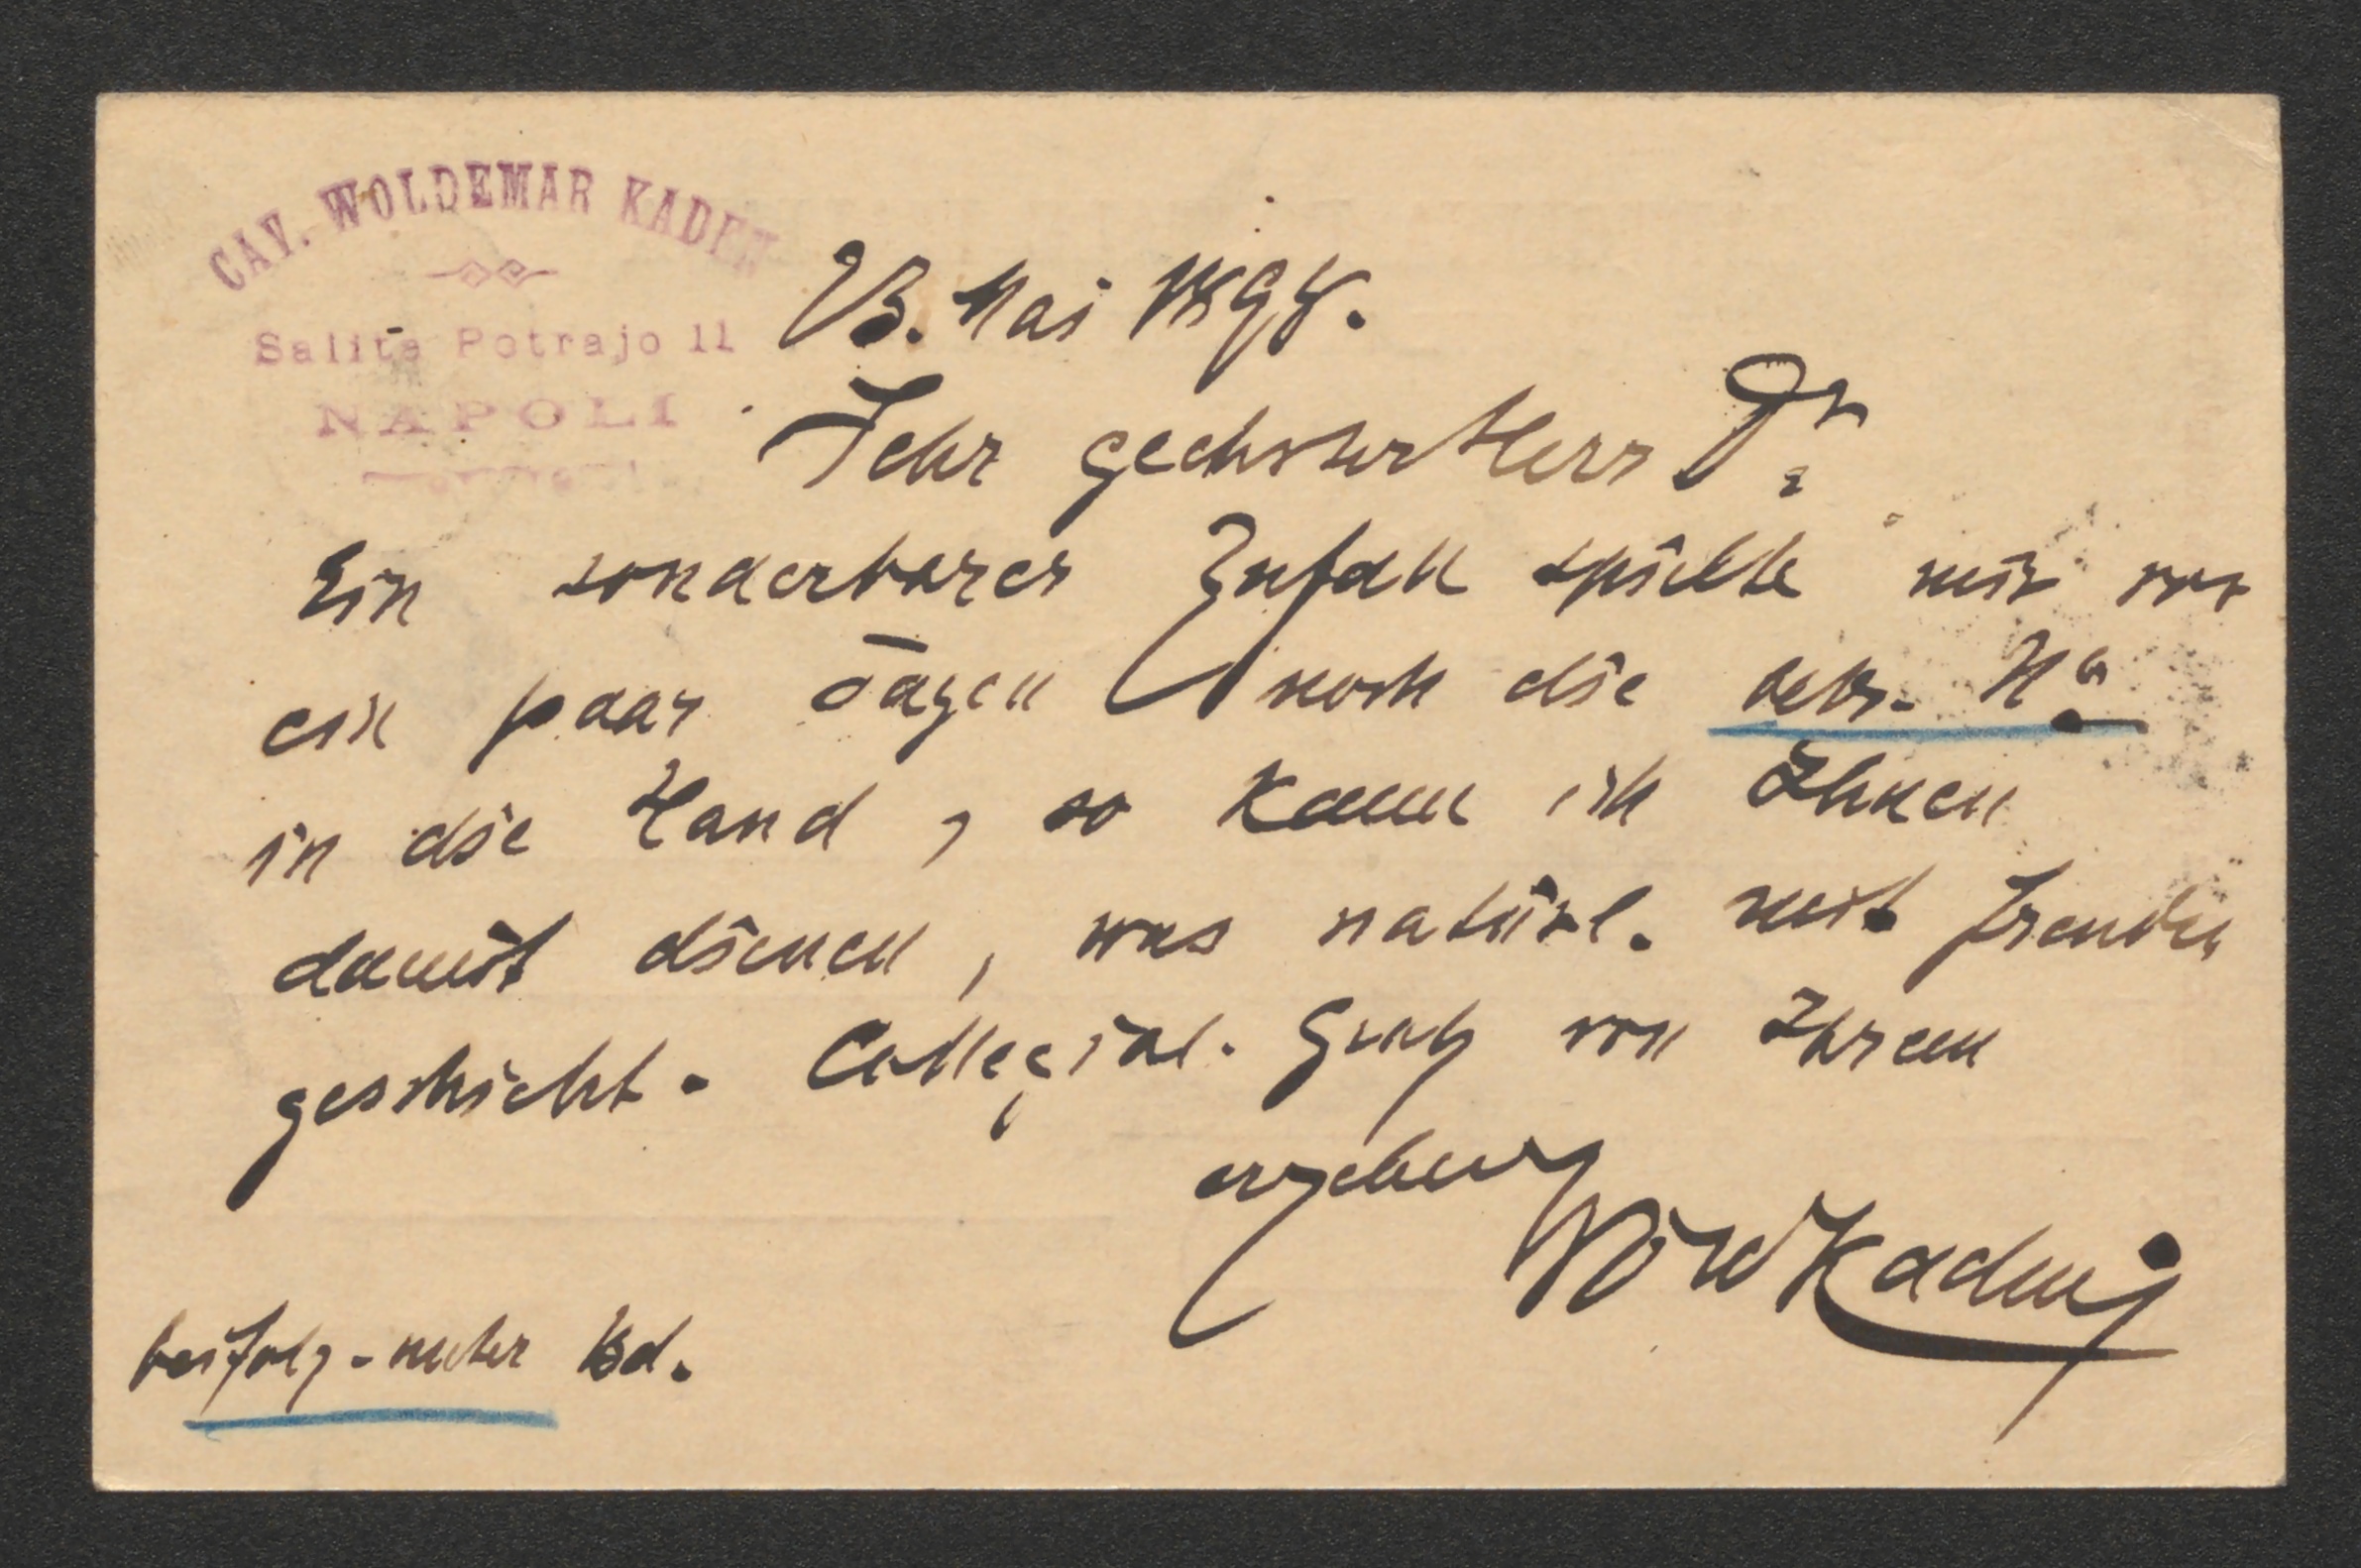 CAV. WOLDEMAR KADEN
Salita Potrajo 11
NAPOLI
23. Mai 1898.
Sehr geehrter Herr Dr.
Ein sonderbarer Zufall spielte mir vor
ein paar Tagen noch die betr. No
in die Hand, so kann ich Ihnen
damit dienen, was natürl. mit Freuden
geschieht. Collegial. Gruß von Ihrem
ergebenen
Wold Kaden
beifolg. unter Bd.